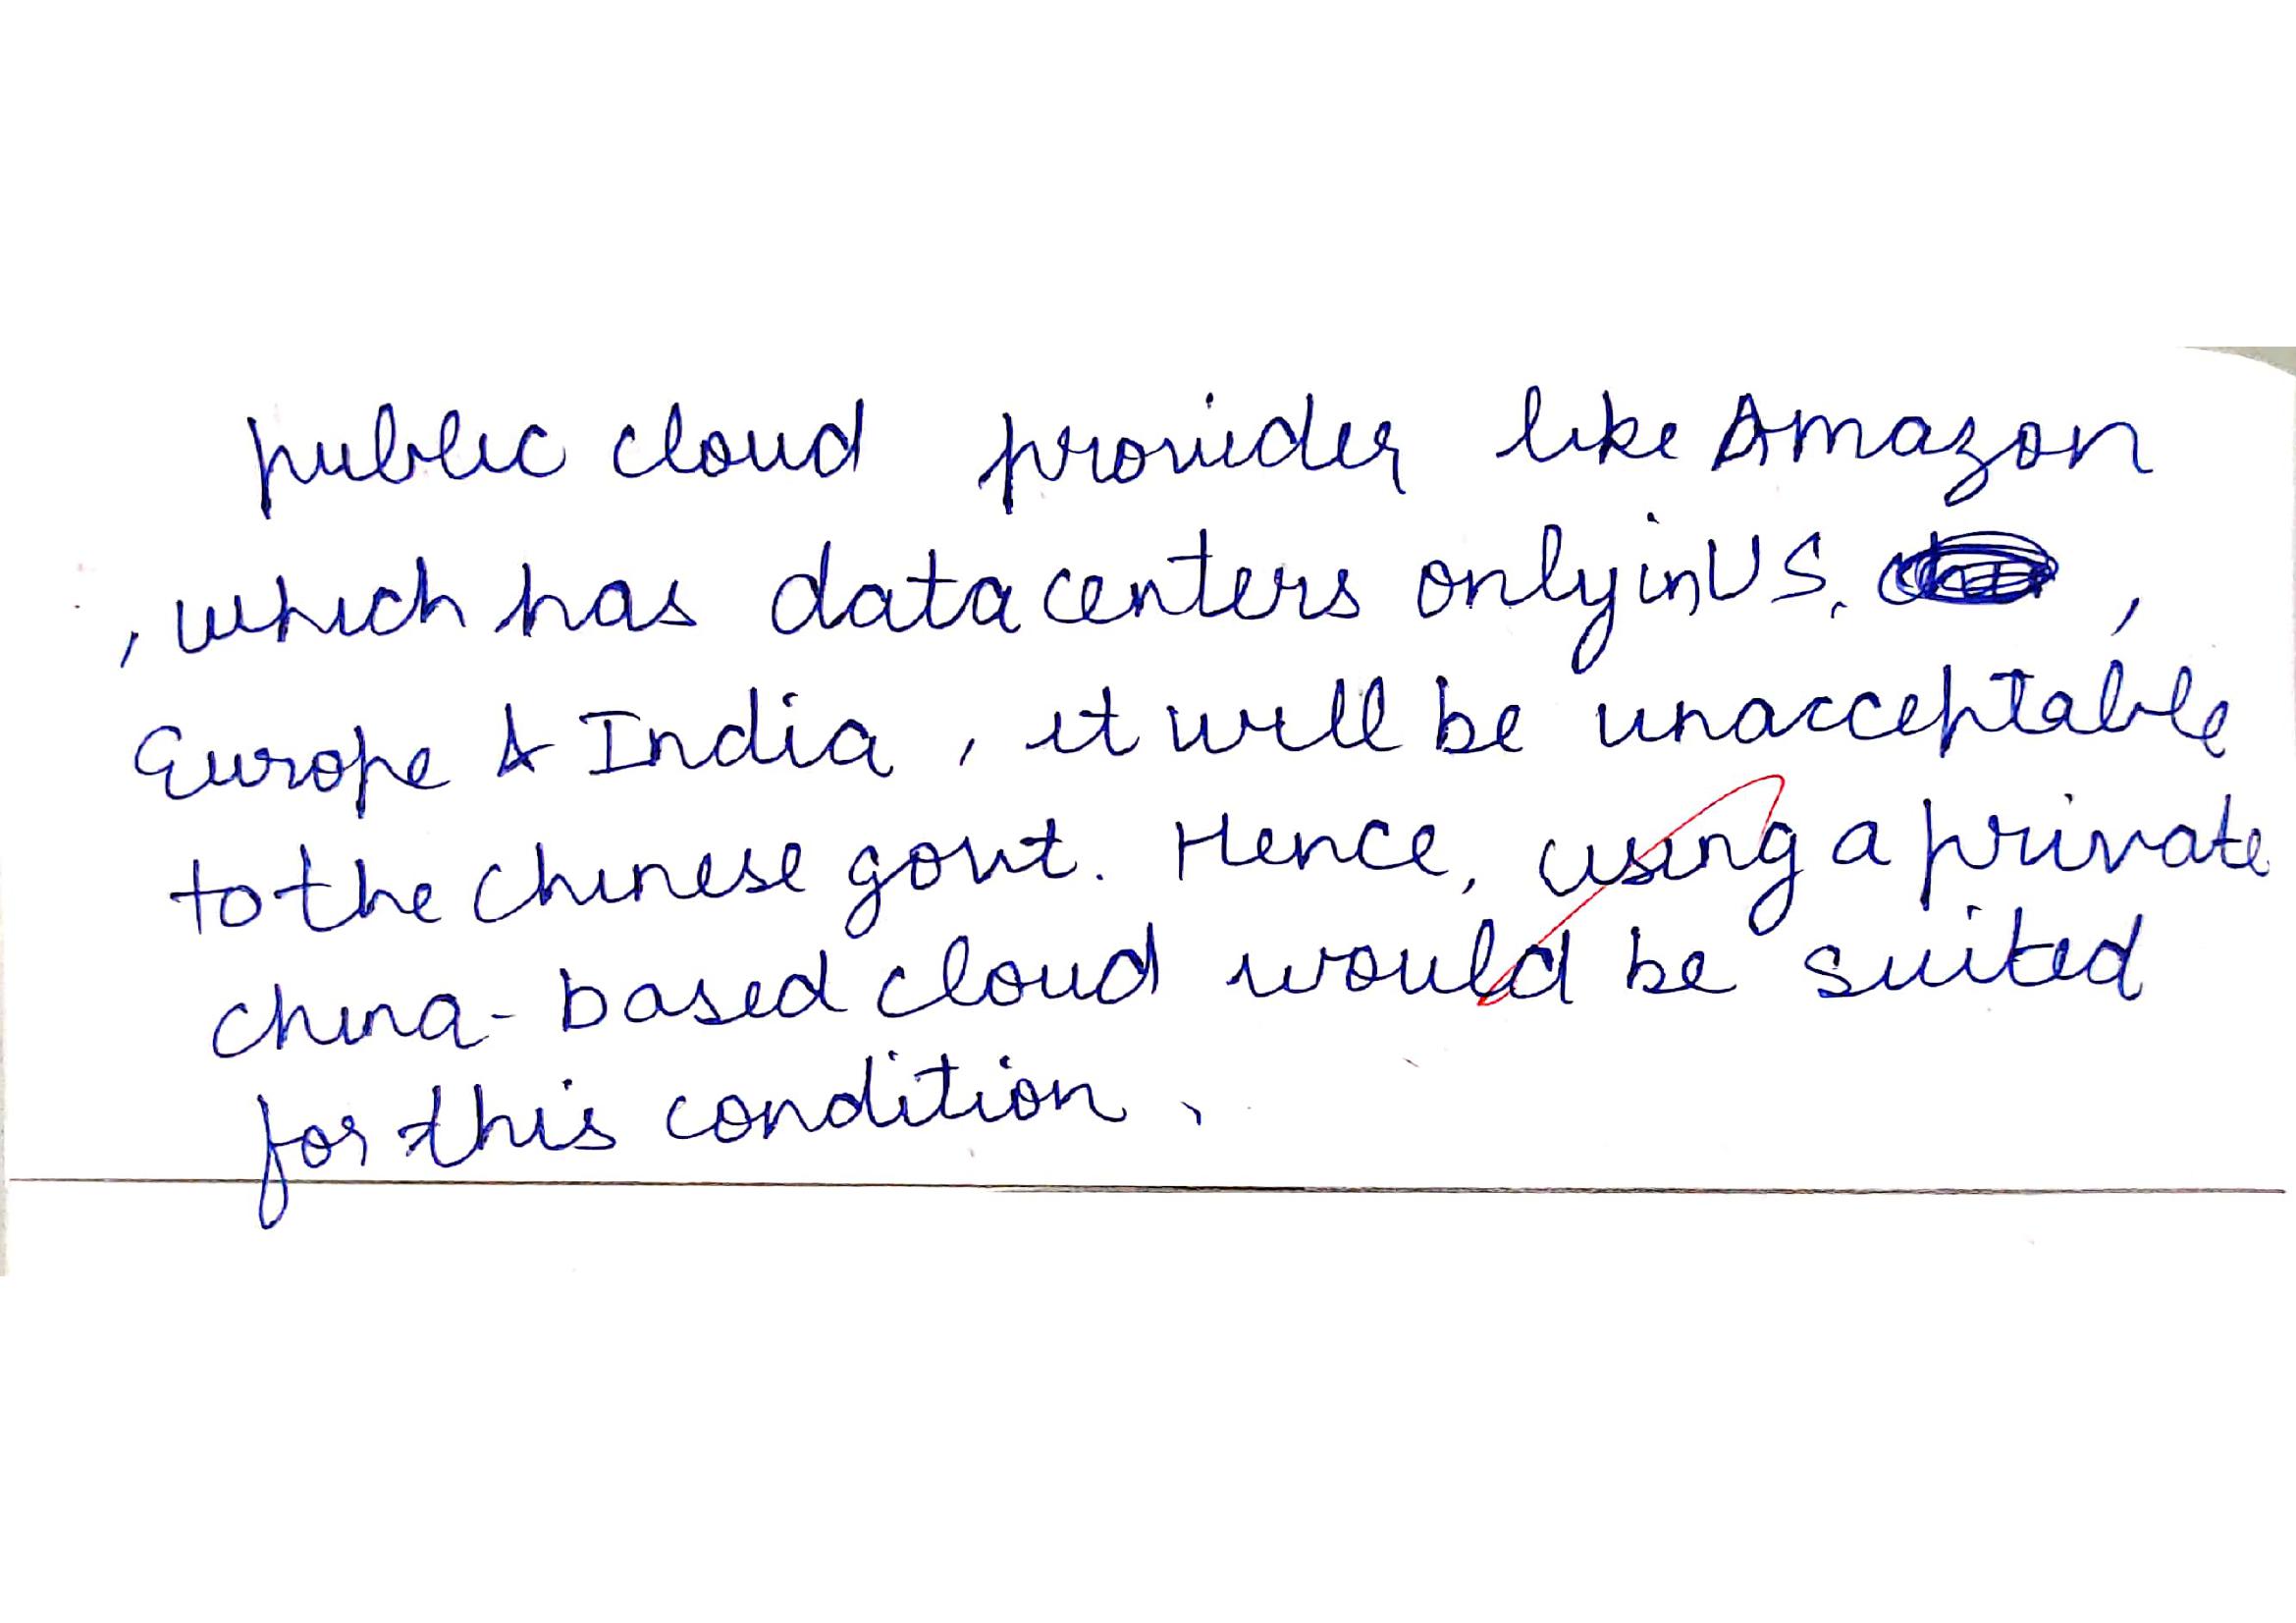 public cloud provider like Amazon
, which has data centers only in US. ,
Europe & India, it will be unacceptable
to the chinese govt. Hence, using a private
china-based cloud would be suited
for this condition.